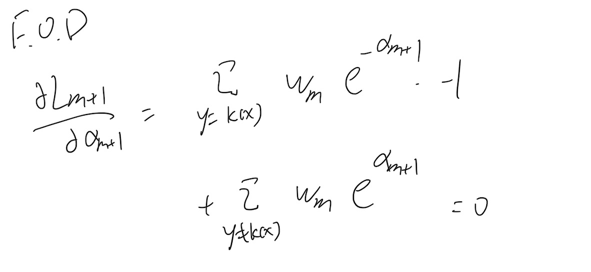 F.O.D
∂L_{m+1}/∂α_{m+1} = Σ_{y=k(x)} w_m e^{-α_{m+1}} · -1
+ Σ_{y≠k(x)} w_m e^{α_{m+1}} = 0